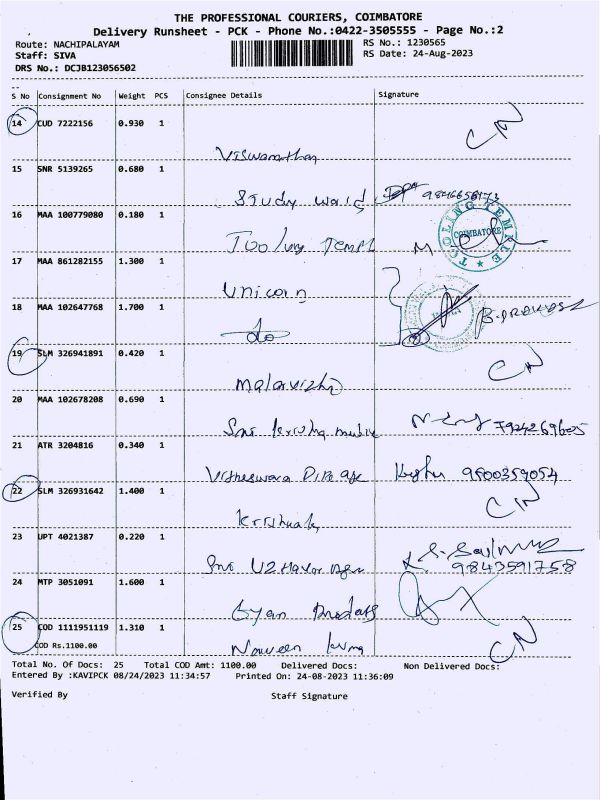 THE PROFESSIONAL COURIERS, COIMBATORE
Delivery Runsheet - PCK - Phone No.:0422-3505555 - Page No.:2
Route: NACHIPALAYAM RS No.: 1230565
Staff: SIVA RS Date: 24-Aug-2023
DRS No.: DCJB123056502
S No Consignment No Weight PCS Consignee Details Signature
14 CUD 7222156 0.930 1 CN
Viswanathan
15 SNR 5139265 0.680 1
Study world
16 MAA 100779080 0.180 1 TOOLING TEMPLE COIMBATORE
Tooling Templ
17 MAA 861282155 1.300 1
Unicorn
18 MAA 102647768 1.700 1
do
19 SLM 326941891 0.420 1 CN
Malarvizhi
20 MAA 102678208 0.690 1
Sri krishna
21 ATR 3204816 0.340 1
9600359054
22 SLM 326931642 1.400 1 CN
23 UPT 4021387 0.220 1
9843591758
24 MTP 3051091 1.600 1
Gyan Products
25 COD 1111951119 1.310 1 CN
COD Rs.1100.00
Naveen kumar
Total No. Of Docs: 25 Total COD Amt: 1100.00 Delivered Docs: Non Delivered Docs:
Entered By :KAVIPCK 08/24/2023 11:34:57 Printed On: 24-08-2023 11:36:09
Verified By Staff Signature